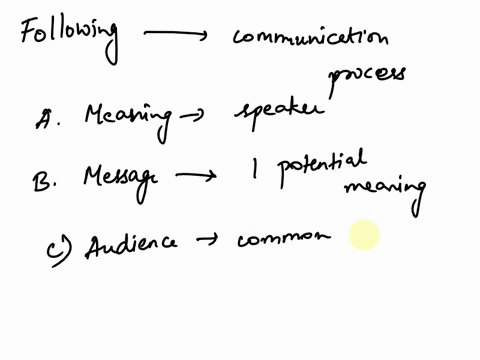 Following → communication process
A. Meaning → speaker
B. Message → 1 potential meaning
c) Audience → common